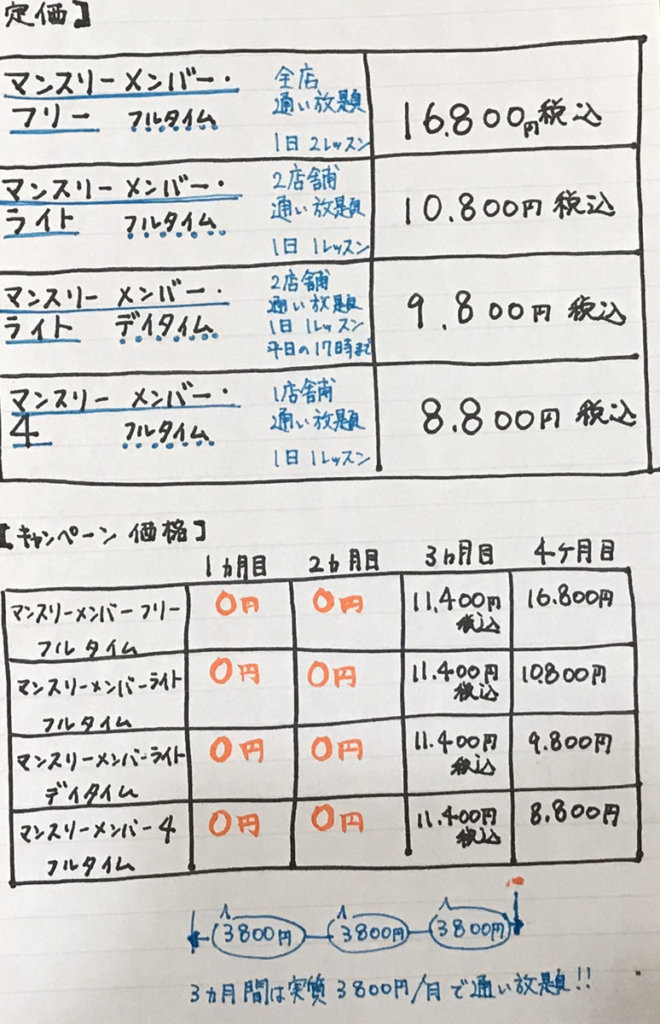 定価】
マンスリーメンバー・
フリー フルタイム
全店
通い放題
1日2レッスン
16.800円税込
マンスリーメンバー・
ライト フルタイム
2店舗
通い放題
1日1レッスン
10.800円税込
マンスリーメンバー・
ライト デイタイム
2店舗
通い放題
1日1レッスン
平日の17時まで
9.800円税込
マンスリーメンバー・
4 フルタイム
1店舗
通い放題
1日1レッスン
8.800円税込
【キャンペーン価格】
1ヵ月目 2ヵ月目 3ヵ月目 4ヶ月目
マンスリーメンバーフリー
フルタイム
0円 0円 11.400円 16.800円
税込
マンスリーメンバーライト
フルタイム
0円 0円 11.400円 10.800円
税込
マンスリーメンバーライト
デイタイム
0円 0円 11.400円 9.800円
税込
マンスリーメンバー4
フルタイム
0円 0円 11.400円 8.800円
税込
3800円 3800円 3800円
3ヵ月間は実質3800円/月で通い放題!!